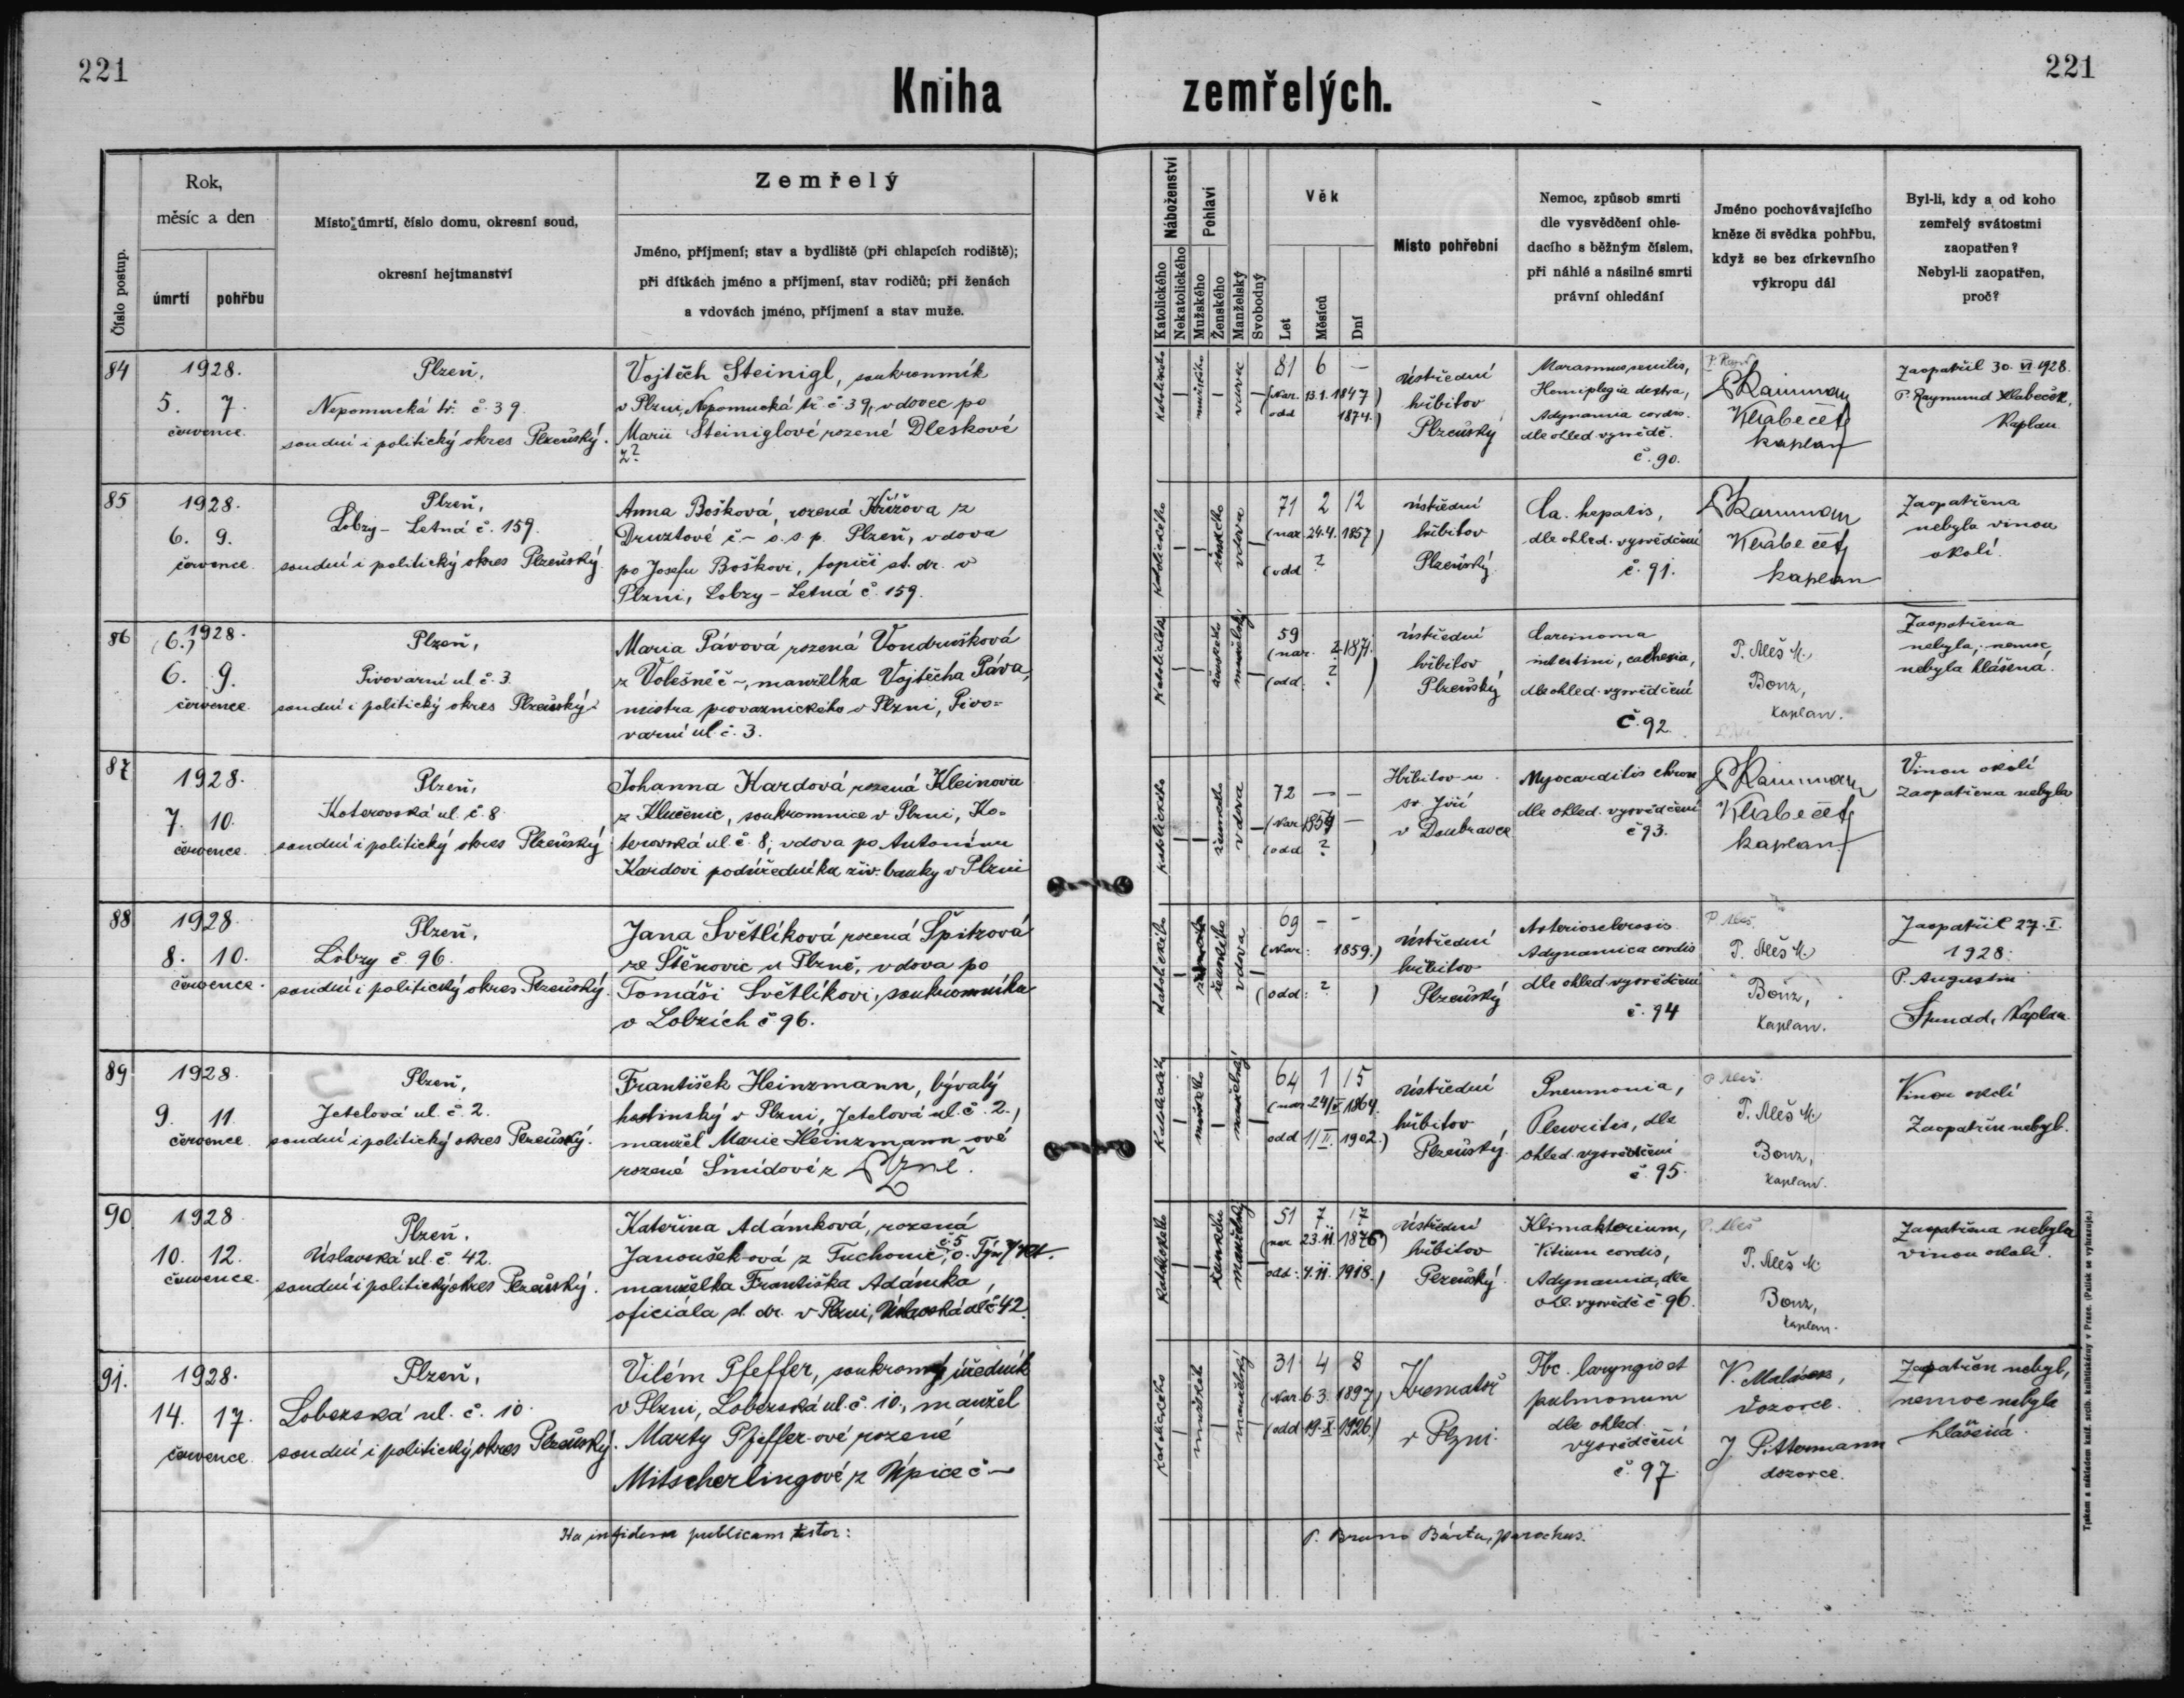 221
221
Kniha zemřelých.
Číslo postup.
Rok,
měsíc a den
úmrtí
pohřbu
Místo úmrtí, číslo domu, okresní soud,
okresní hejtmanství
Zemřelý
Jméno, příjmení; stav a bydliště (při chlapcích rodiště);
při dítkách jméno a příjmení, stav rodičů; při ženách
a vdovách jméno, příjmení a stav muže.
Náboženství
Katolického
Nekatolického
Pohlaví
Mužského
Ženského
Manželský
Svobodný
Věk
Let
Měsíců
Dní
Místo pohřební
Nemoc, způsob smrti
dle vysvědčení ohle-
dacího s běžným číslem,
při náhlé a násilné smrti
právní ohledání
Jméno pochovávajícího
kněze či svědka pohřbu,
když se bez církevního
výkropu dál
Byl-li, kdy a od koho
zemřelý svátostmi
zaopatřen?
Nebyl-li zaopatřen,
proč?
84
1928.
5. 7.
července.
Plzeň,
Nepomucká tř. č. 39.
soudní i politický okres Plzeňský.
Vojtěch Steinigl, soukromník
v Plzni, Nepomucká tř. č. 39, vdovec po
Marii Steiniglové rozené Dleskové
z?
katolického
mužského
vdovec
81 6 –
(Nar. 13.1. 1847)
odd 1874.)
ústřední
hřbitov
Plzeňský
Marasmus senilis,
Hemiplegia dextra,
Adynamia cordis.
dle ohled. vysvědč.
č. 90.
P. Raimman
Klabečet
kaplan
Zaopatřil 30. VI 1928.
P. Raymund Klabeček,
Kaplan
85
1928.
6. 9.
července.
Plzeň,
Lobzy – Letná č. 159.
soudní i politický okres Plzeňský.
Anna Bošková, rozená Křížova z
Druztové č – o. s. p. Plzeň, vdova
po Josefu Boškovi, topiči st. dr. v
Plzni, Lobzy – Letná č. 159.
Katolického
ženského
vdova
71 2 12
(nar 24.4. 1857)
(odd ?
ústřední
hřbitov
Plzeňský.
Ca. hepatis,
dle ohled. vysvědčení
č. 91.
P. Raimman
Klabečet
kaplan
Zaopatřena
nebyla vinou
okolí.
86
1928.
(6.)
6. 9.
července.
Plzeň,
Pivovarní ul. č. 3.
soudní i politický okres Plzeňský.
Maria Pávová rozená Vondrušková
z Volešné č –, manželka Vojtěcha Páva,
mistra provaznického v Plzni, Pivo-
varní ul. č. 3.
Katolického
ženského
manželský
59
(nar. 2.1871.
(odd. ? )
ústřední
hřbitov
Plzeňský
Carcinoma
intestini, cachexia,
dle ohled. vysvědčení
č. 92.
P. Aleš M.
Bonz,
kaplan.
Zaopatřena
nebyla, nemoc
nebyla hlášena.
87
1928.
7. 10.
července.
Plzeň,
Koterovská ul. č. 8
soudní i politický okres Plzeňský
Johanna Kardová rozená Kleinova
z Klučenic, soukromnice v Plzni, Ko-
terovská ul. č. 8, vdova po Antonínu
Kardovi podúředníku živ. banky v Plzni
katolického
ženského
vdova
72 – –
(Nar. 1857 –
(odd ? )
Hřbitov u
sv. Jiří
v Doubravce
Myocarditis chron
dle ohled. vysvědčení
č 93.
P. Raimman
Klabečet
kaplan
Vinou okolí
zaopatřena nebyla
88
1928.
8. 10.
července.
Plzeň,
Lobzy č. 96.
soudní i politický okres Plzeňský.
Jana Světlíková rozená Špitzová
ze Štěnovic u Plzně, vdova po
Tomáši Světlíkovi, soukromníku
v Lobzích č. 96.
Katolického
ženského
vdova
69 – –
(Nar: 1859.)
(odd: ? )
ústřední
hřbitov
Plzeňský
Arteriosclerosis
Adynamica cordis
dle ohled. vysvědčení
č. 94
P. Aleš.
P. Aleš M.
Bonz,
kaplan.
Zaopatřil 27. I.
1928.
P. Augustin
Spundd, Kaplan.
89
1928.
9. 11.
července.
Plzeň,
Jetelová ul. č. 2.
soudní i politický okres Plzeňský.
František Heinzmann, bývalý
hostinský v Plzni, Jetelová ul. č. 2.,
manžel Marie Heinzmann-ové
rozené Šmídové z Plzně.
Katolického
mužského
manželský
64 1 15
(nar. 24/V. 1864.
odd 11/II. 1902.)
ústřední
hřbitov
Plzeňský.
Pneumonia,
Pleuritis, dle
ohled. vysvědčení
č. 95.
P. Aleš.
P. Aleš M.
Bonz,
kaplan.
Vinou okolí
Zaopatřen nebyl.
90
1928.
10. 12.
července.
Plzeň.
Úslavská ul. č. 42.
soudní i politický okres Plzeňský.
Kateřina Adámková, rozená
Janoušek-ová z Tuchonic, č. 5 o. Týn / Vlt.
manželka Františka Adámka,
oficiála st. dr. v Plzni, Úslavská ul č 42.
Katolického
ženského
manželský
51 7 17
(nar 23.11. 1876)
odd: 4.11. 1918.)
ústřední
hřbitov
Plzeňský.
Klimakterium,
Vitium cordis,
Adynamia, dle
ohl. vysvědč č. 96.
P. Aleš
P. Aleš M.
Bonz,
kaplan.
Zaopatřena nebyla
vinou okolí.
91.
1928.
14. 17.
července.
Plzeň,
Lobezská ul. č. 10.
soudní i politický okres Plzeňský.
Vilém Pfeffer, soukromý úředník
v Plzni, Lobezská ul. č. 10., manžel
Marty Pfeffer-ové rozené
Mitscherlingové z Úpice č –
Katolického
mužského
manželský
31 4 8
(Nar. 6.3. 1897)
(odd 19.X. 1926)
Krematoř
v Plzni.
Tbc. laryngis et
pulmonum
dle ohled.
vysvědčení
č. 97.
dozorce.
J. Pittermann
dozorce.
Zaopatřen nebyl,
nemoc nebyla
hlášená.
Ha in fidem publicam testor:
P. Bruno Bárta, parochus.